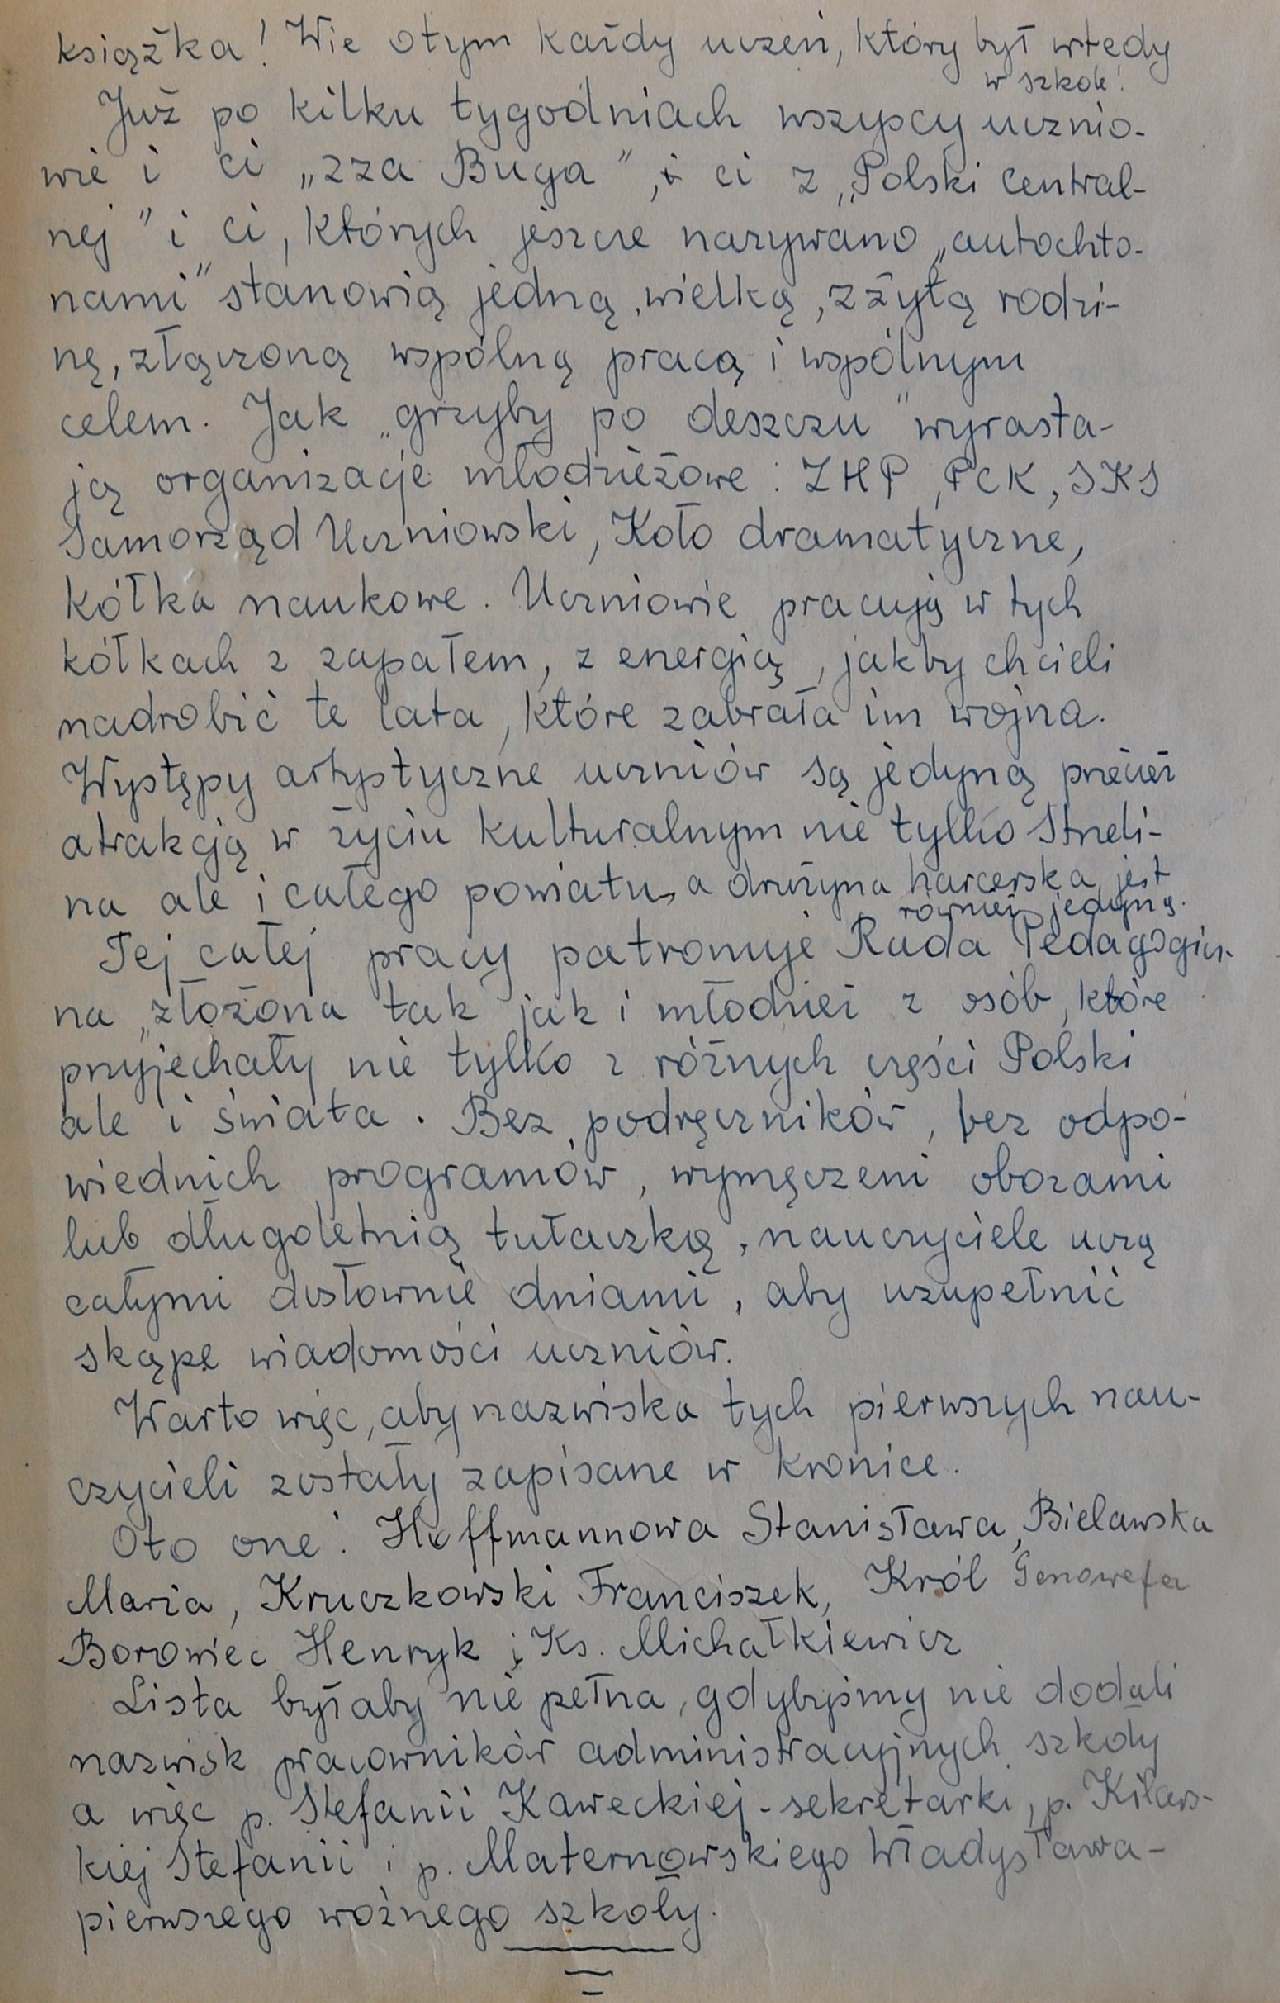 książka! Wie o tym każdy uczeń, który był wtedy
w szkole!
Już po kilku tygodniach wszyscy ucznio-
wie i ci „zza Buga", i ci z „Polski Central-
nej" i ci, których jeszcze nazywano „autochto-
nami" stanowią jedną, wielką, zżytą rodzi-
nę, złączoną wspólną pracą i wspólnym
celem. Jak „grzyby po deszczu" wyrasta-
ją organizacje młodzieżowe: ZHP, PCK, SKS
Samorząd Uczniowski, Koło dramatyczne,
kółka naukowe. Uczniowie pracują w tych
kółkach z zapałem, z energią, jakby chcieli
nadrobić te lata, które zabrała im wojna.
Występy artystyczne uczniów są jedyną przecież
atrakcją w życiu kulturalnym nie tylko Strzeli-
na ale i całego powiatu, a drużyna harcerska jest
również jedyną.
Tej całej pracy patronuje Rada Pedagogicz-
na złożona tak jak i młodzież z osób, które
przyjechały nie tylko z różnych części Polski
ale i świata. Bez podręczników, bez odpo-
wiednich programów, wymęczeni obozami
lub długoletnią tułaczką, nauczyciele uczą
całymi dosłownie dniami, aby uzupełnić
skąpe wiadomości uczniów.
Warto więc, aby nazwiska tych pierwszych nau-
czycieli zostały zapisane w kronice.
Oto one: Hoffmannowa Stanisława, Bielawska
Maria, Kruczkowski Franciszek, Król Genowefa
Borowiec Henryk i Ks. Michałkiewicz
Lista byłaby nie pełna, gdybyśmy nie dodali
nazwisk pracowników administracyjnych szkoły
a więc p. Stefanii Kaweckiej - sekretarki, p. Kilars-
kiej Stefanii i p. Maternowskiego Władysława -
pierwszego woźnego szkoły.